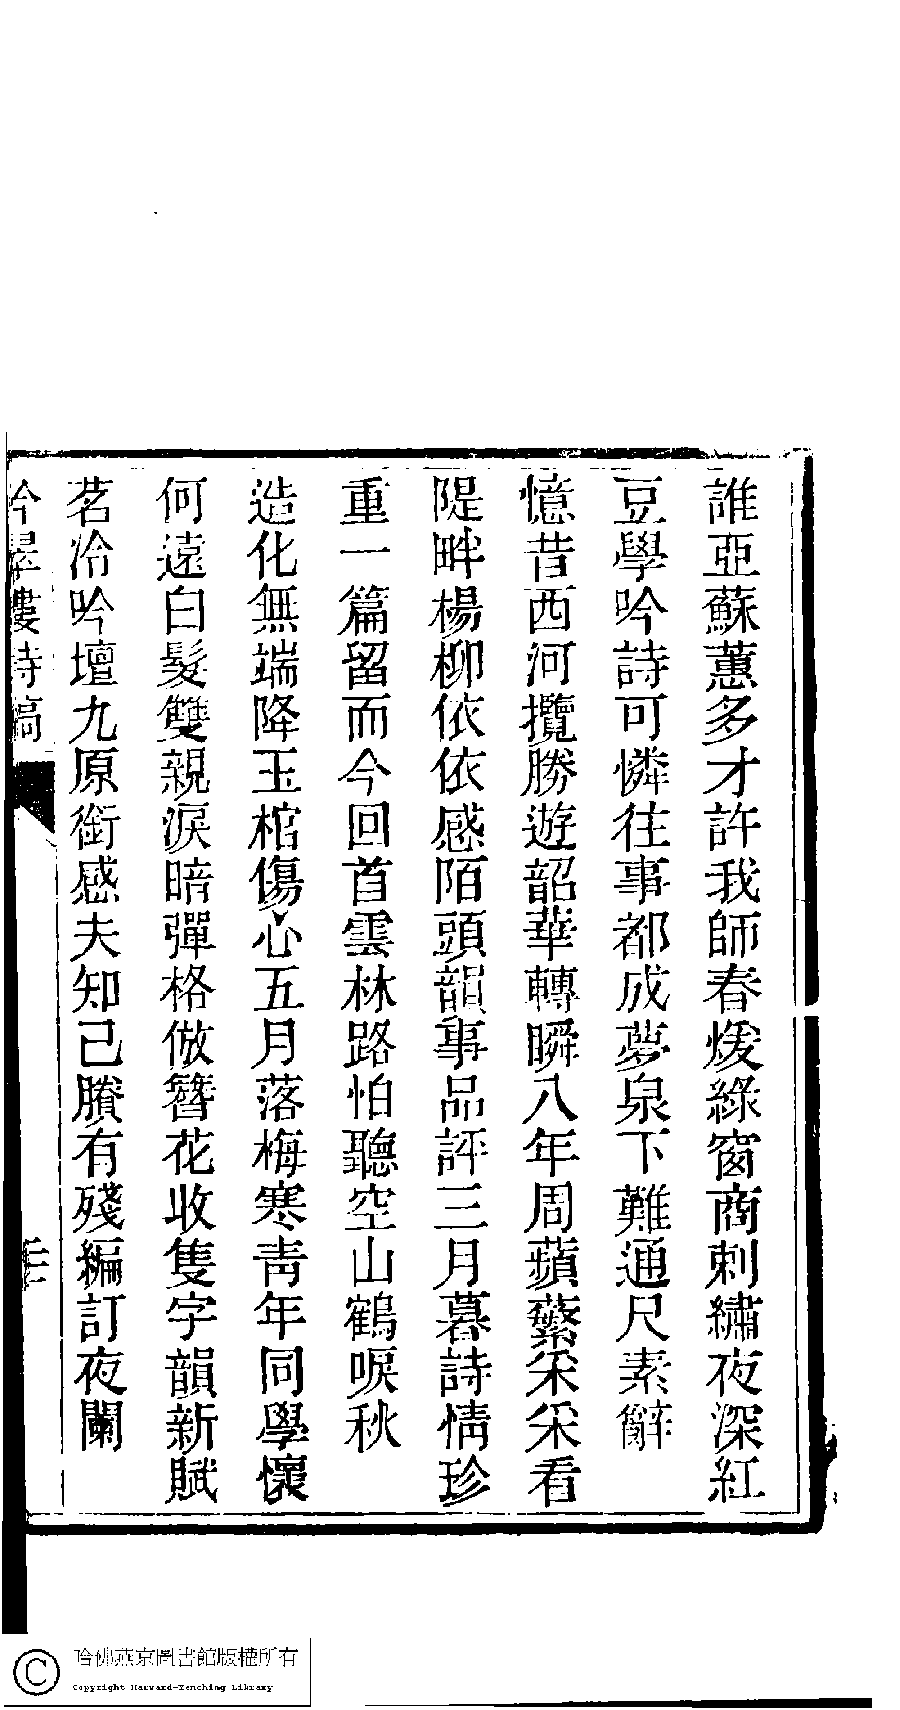 誰亞蘇蕙多才許我師春煖綠窗商刺繡夜深紅
豆學吟詩可憐往事都成夢泉下難通尺素辭
憶昔西河攬勝遊韶華轉瞬八年周蘋蘩采采看
隄畔楊柳依依感陌頭韻事品評三月暮詩情珍
重一篇留而今回首雲林路怕聽空山鶴唳秋
造化無端降玉棺傷心五月落梅寒靑年同學懷
何遠白髮雙親淚暗彈格倣簪花收隻字韻新賦
茗冷吟壇九原銜感夫知己賸有殘編訂夜闌
吟翠樓詩稿
二十
哈佛燕京圖書館版權所有
Copyright Harvard-Yenching Library